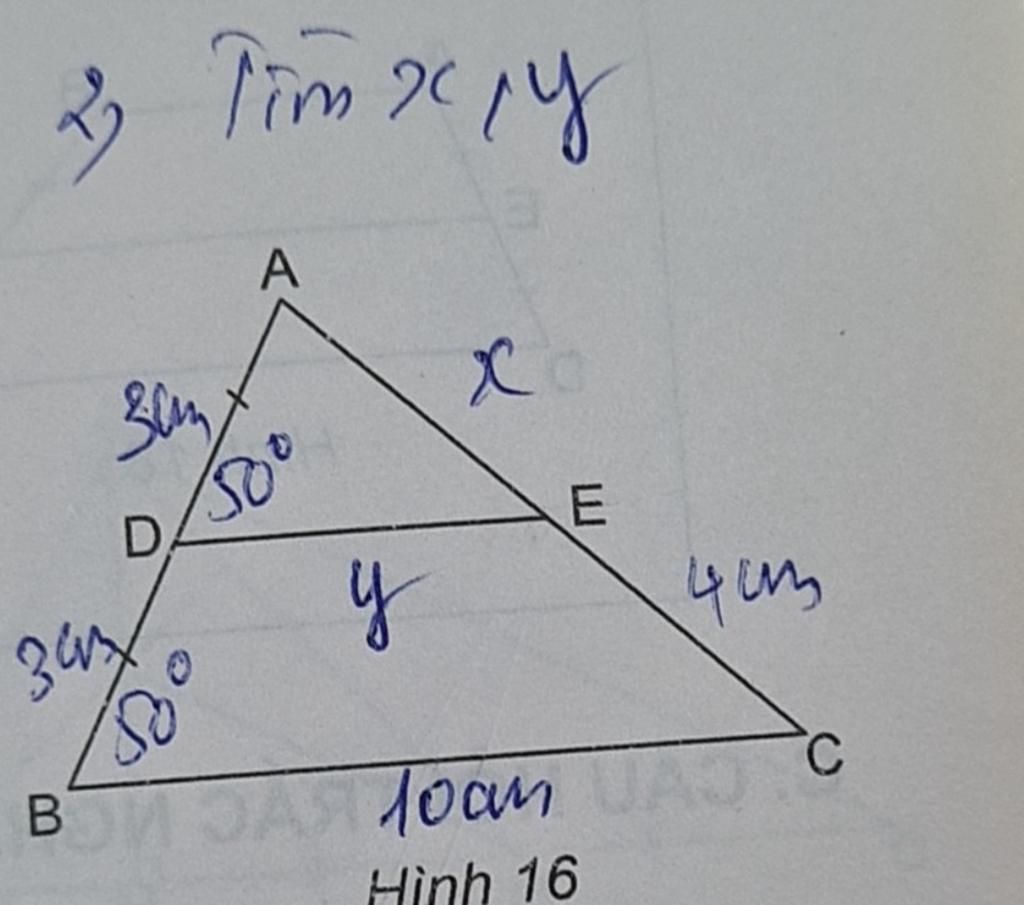 2) Tìm x, y
A
3cm
x
50°
D
E
y
4cm
3cm
50°
B
C
10cm
Hình 16